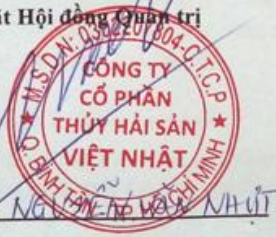 ặt Hội đồng Quản trị
M.S.D.N: 0302207804-C.T.C.P
CÔNG TY
CỔ PHẦN
THỦY HẢI SẢN
VIỆT NHẬT
Q. BÌNH TÂN - TP. HỒ CHÍ MINH
NGUYỄN VĂN NHỰT